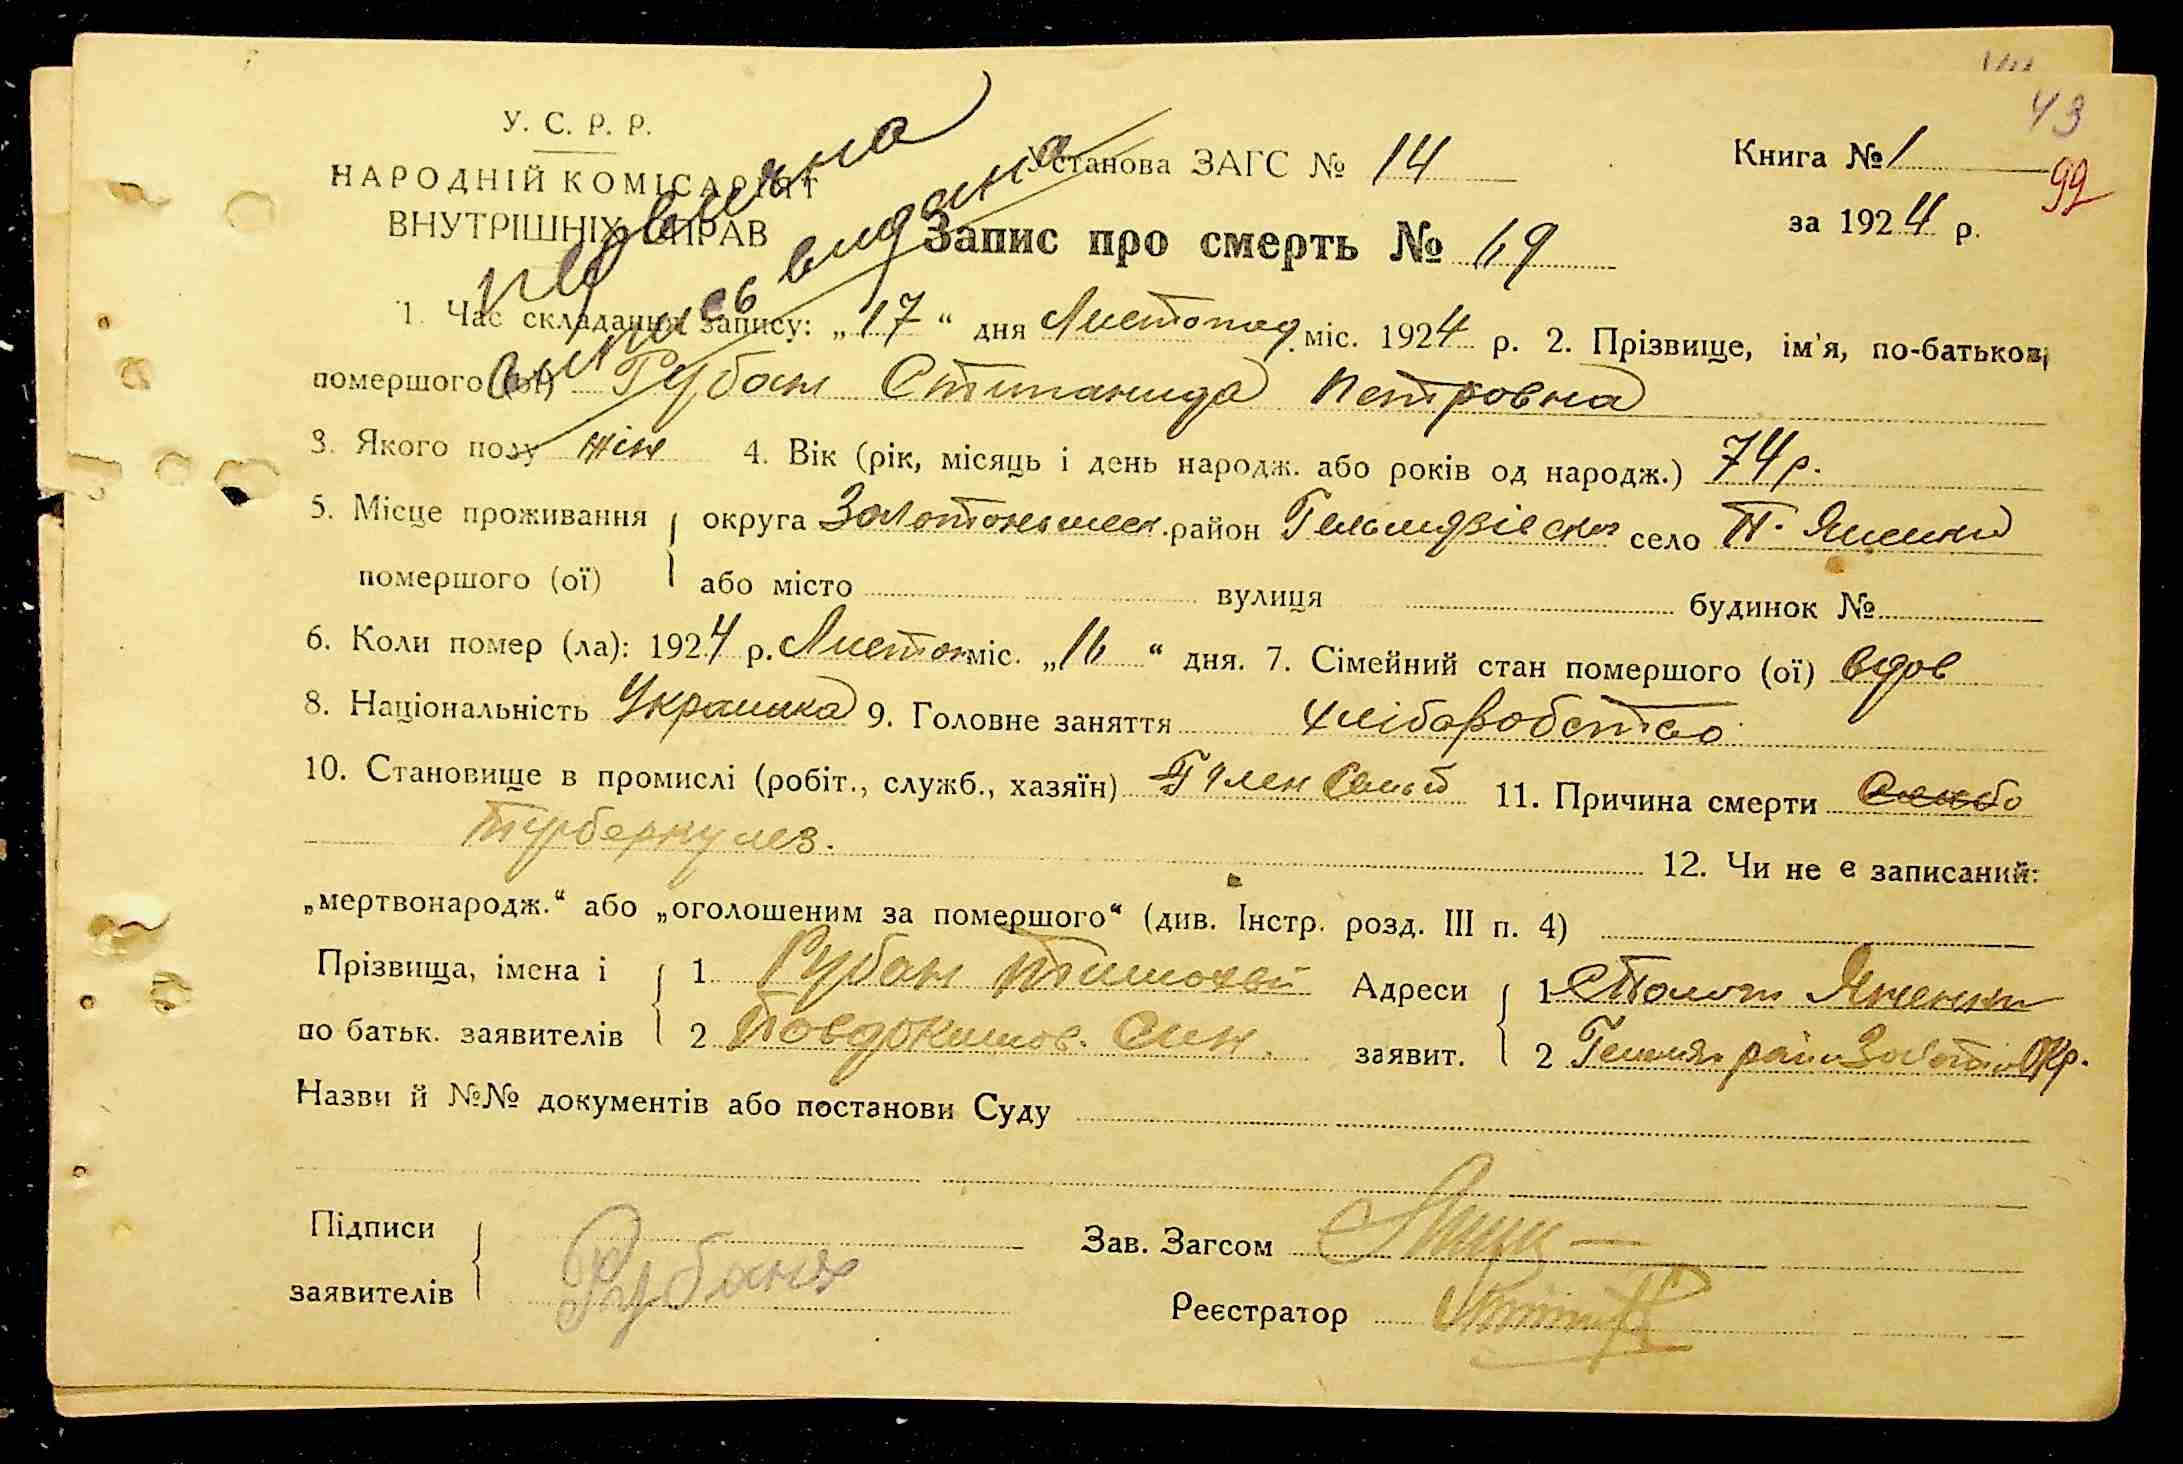 43
99
У. С. Р. Р.
НАРОДНІЙ КОМІСАРІЯТ
ВНУТРІШНІХ СПРАВ
Установа ЗАГС № 14
Книга № 1
за 1924 р.
Запис про смерть № 69
выпись выдана
1. Час складання запису: „17" дня Листопад міс. 1924 р. 2. Прізвище, ім'я, по-батькові
помершого (ої) Рубан Степанида Петровна
3. Якого полу жін 4. Вік (рік, місяць і день народж. або років од народж.) 74 р.
5. Місце проживання округа Золотоношск. район Гельмязівськ село П. Яшенки
помершого (ої) або місто вулиця будинок №
6. Коли помер (ла): 1924 р. Листоп міс. „16" дня. 7. Сімейний стан помершого (ої) вдов
8. Національність Украинка 9. Головне заняття хліборобство
10. Становище в промислі (робіт., служб., хазяїн) Член семьи 11. Причина смерти
турберкулез.
12. Чи не є записаний:
„мертвонародж." або „оголошеним за помершого" (див. Інстр. розд. III п. 4)
Прізвища, імена і 1 Рубан Тимохей Адреси 1
по батьк. заявителів 2 Повдокимов. син. заявит. 2 Гельмяз район Золотон Окр.
Назви й №№ документів або постанови Суду
Підписи Зав. Загсом
заявителів Рубаня Реєстратор